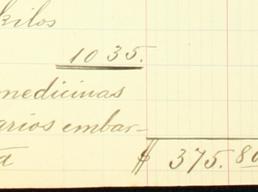 kilos
1035.
medicinas
arios embar-
ta $ 375.80